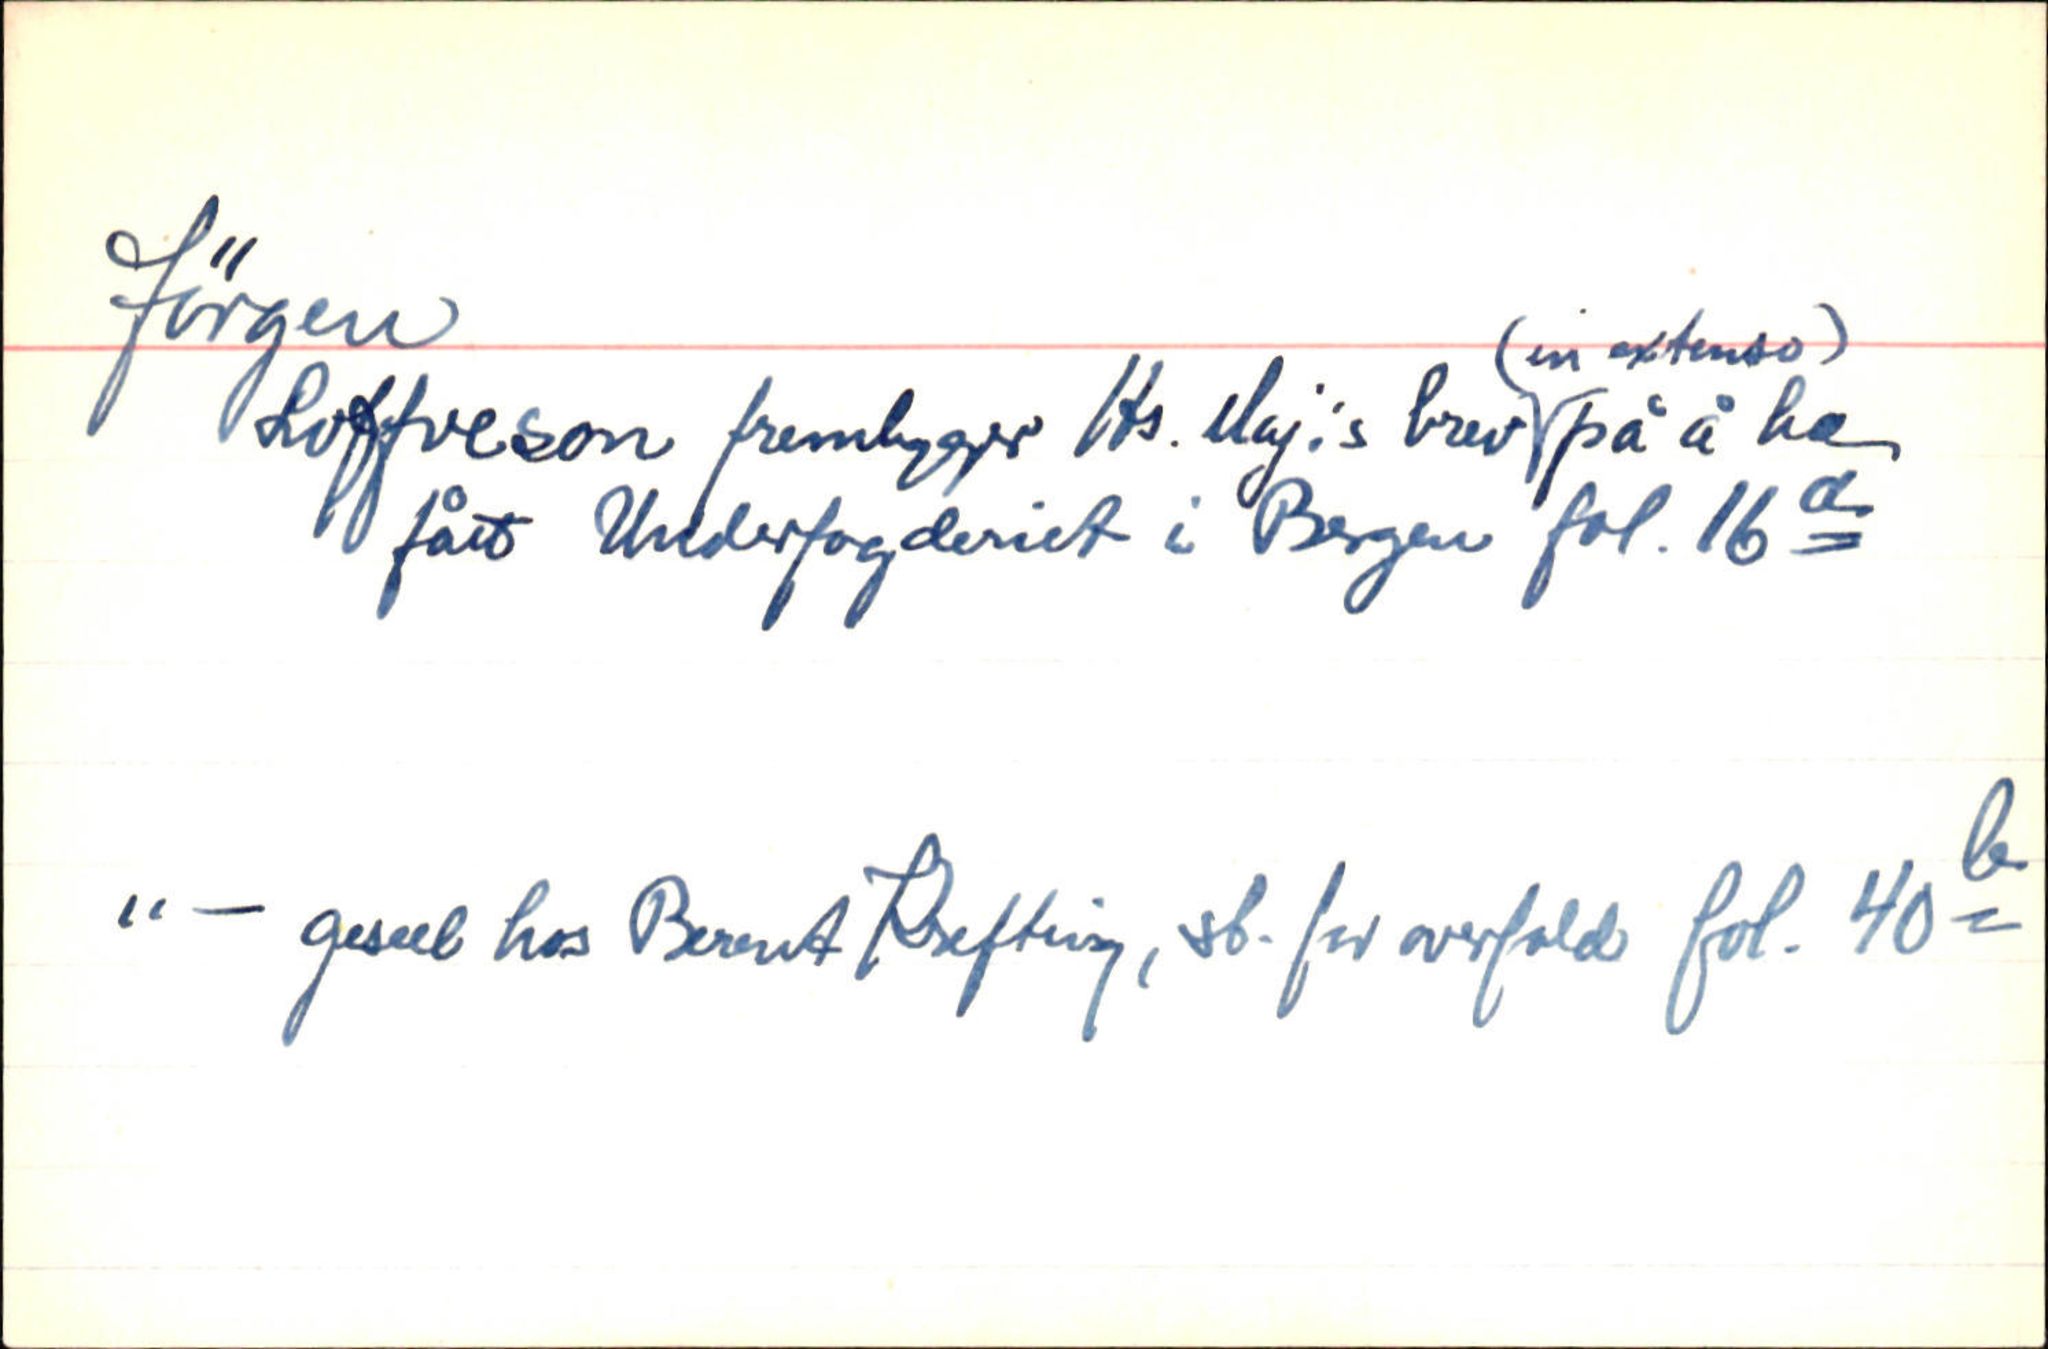 Jörgen
(in extenso)
Loffveson fremlegger Hs. Maj:s brev på å ha
fått Underfogderiet i Bergen fol. 16 a
" — geseel hos Berent Krefting, sb. for overfald fol. 40 b